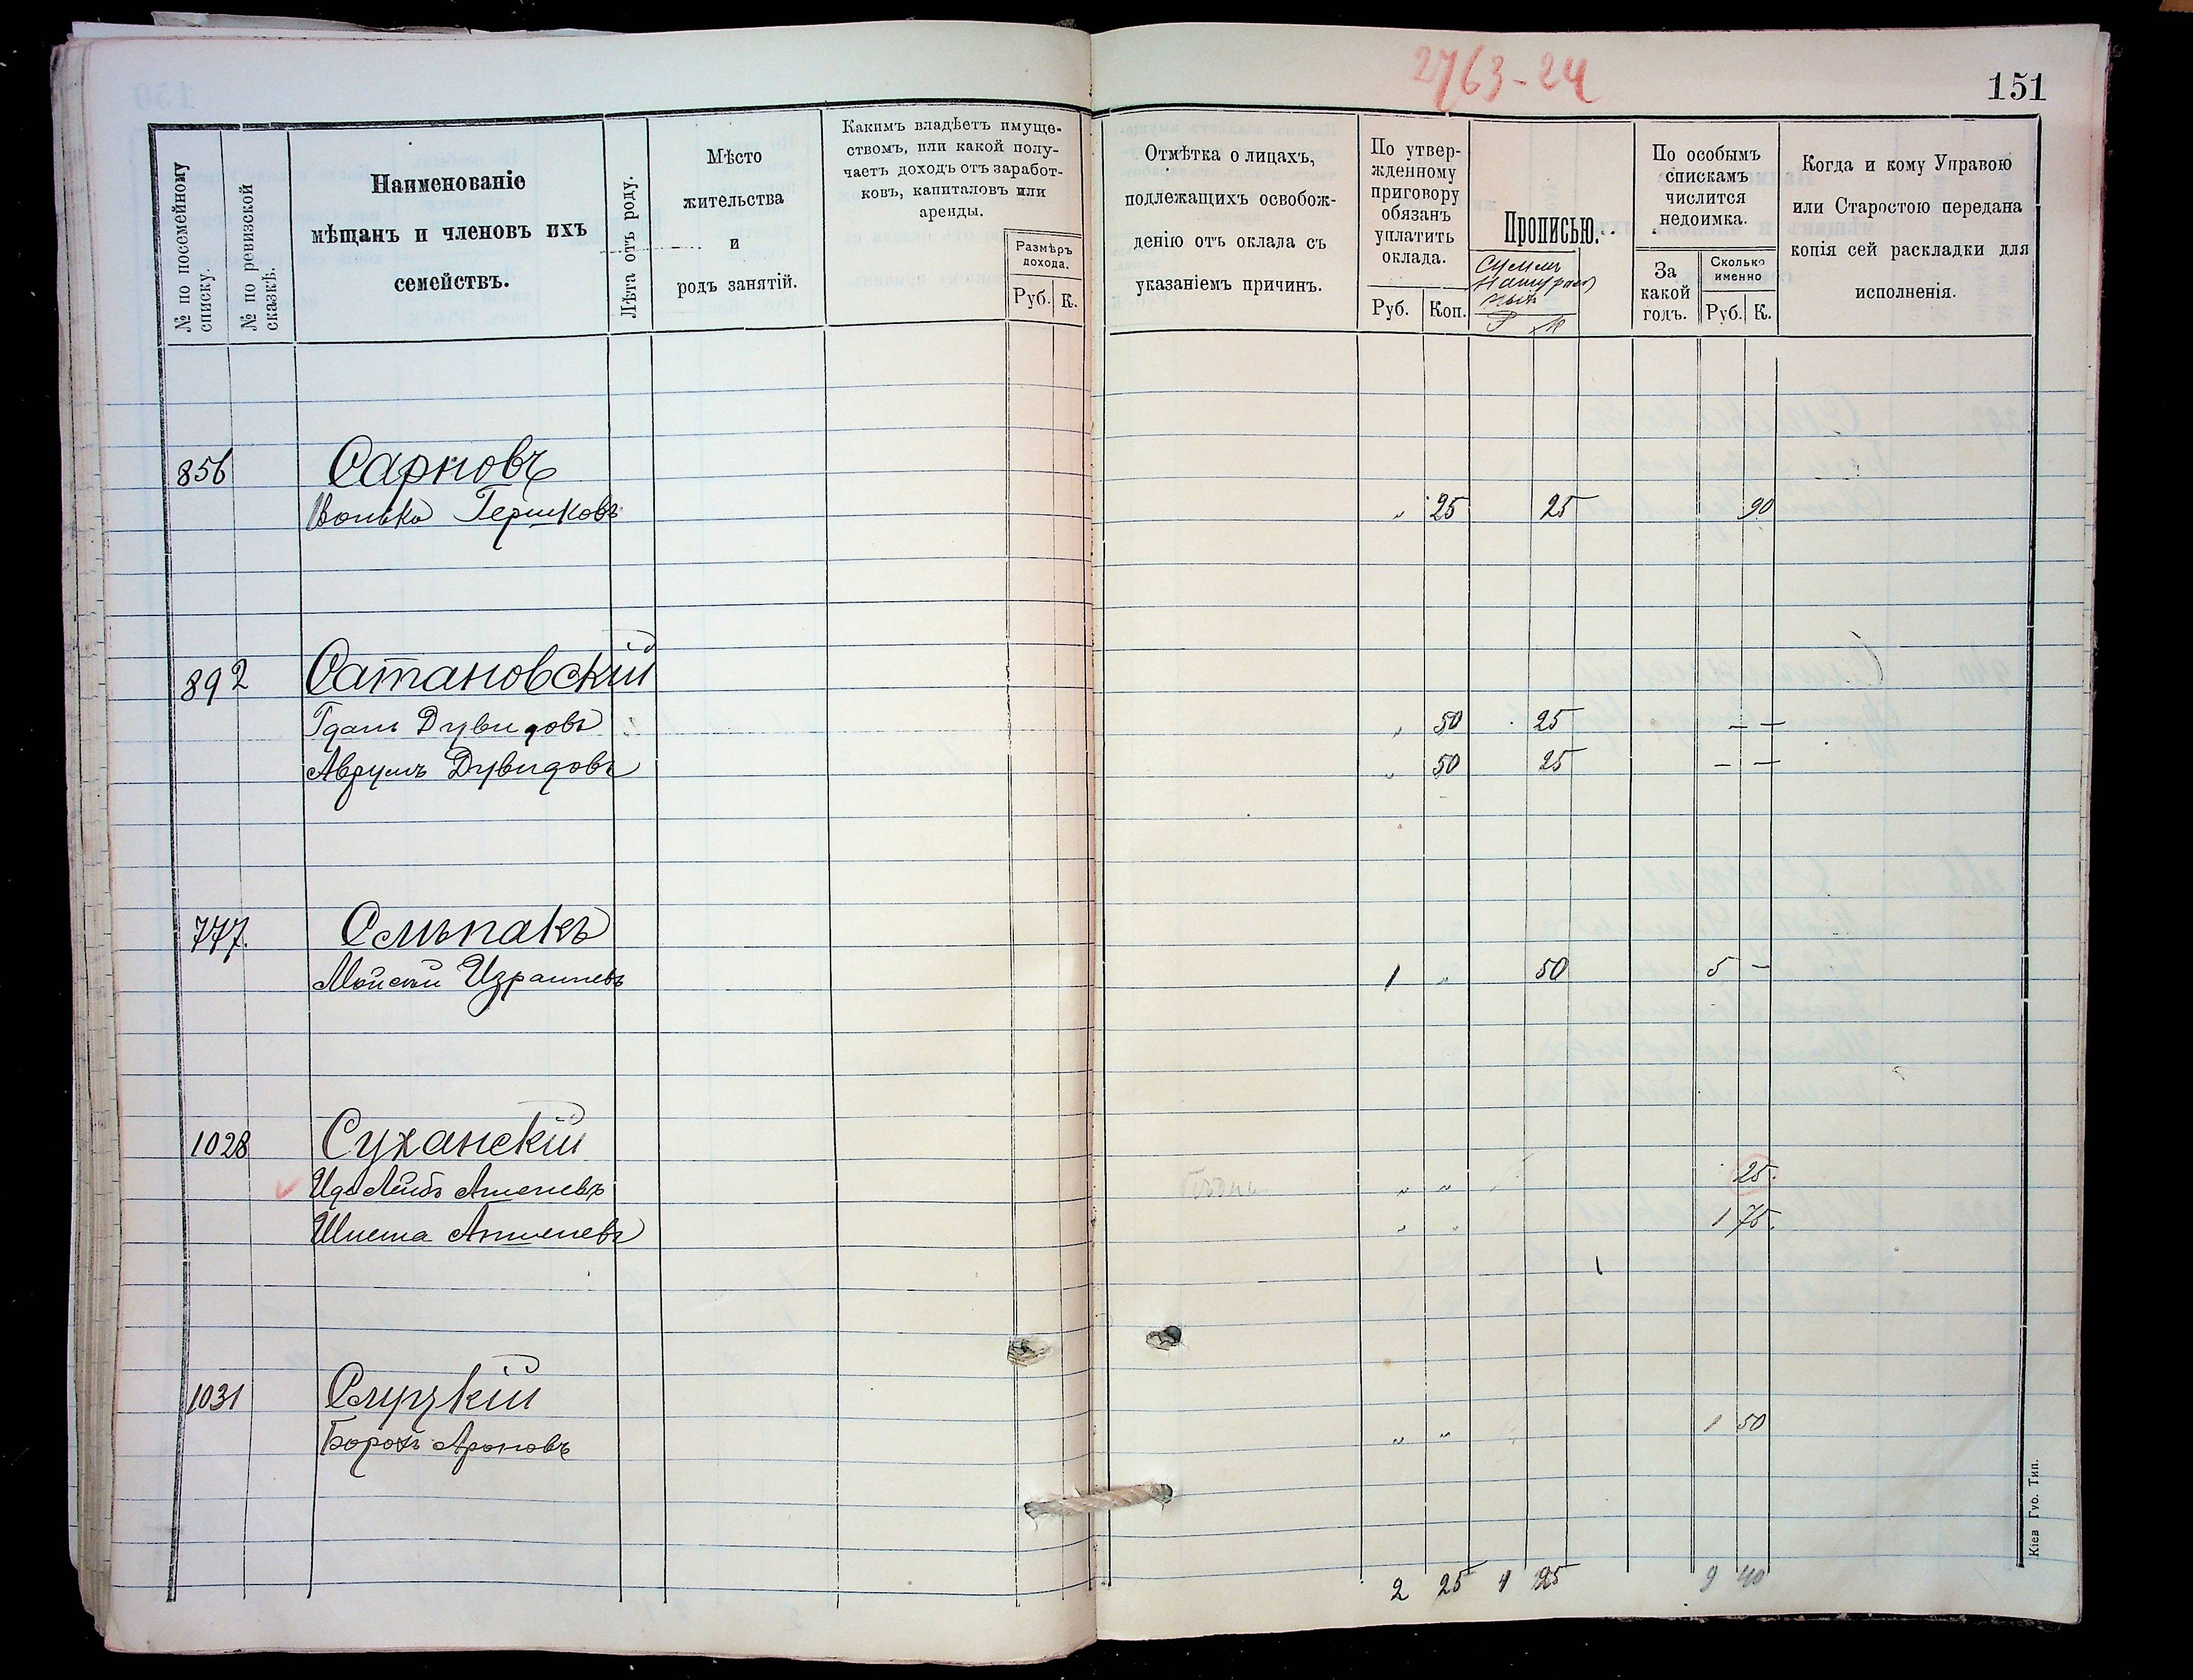 2763-24
151
№ по посемейному списку.
№ по ревизской сказкѣ.
Наименованіе
мѣщанъ и членовъ ихъ
семействъ.
Лѣта отъ роду.
Мѣсто
жительства
и
родъ занятій.
Какимъ владѣетъ имуще-
ствомъ, или какой полу-
чаетъ доходъ отъ заработ-
ковъ, капиталовъ или
аренды.
Размѣръ
дохода.
Руб. К.
Отмѣтка о лицахъ,
подлежащихъ освобож-
денію отъ оклада съ
указаніемъ причинъ.
По утвер-
жденному
приговору
обязанъ
уплатить
оклада.
Руб. Коп.
Прописью.
Р К
По особымъ
спискамъ
числится
недоимка.
За
какой
годъ.
Сколько
именно
Руб. К.
Когда и кому Управою
или Старостою передана
копія сей раскладки для
исполненія.
856 Сарновъ
Волько Гершковъ " 25 25 90
892 Сатановскій
Дувидовъ " 50 25 — —
Аврумъ Дувидовъ " 50 25 — —
777. Слѣпакъ
Мойсей Израилевъ 1 " 50 5 —
1028 Суханскій
" " 25.
" " 1 75.
1031 Слуцкій
Борохъ Ароновъ " " 1 50
2 25 1 25 9 40
Кіев Губ. Тип.